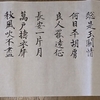 總是玉關情
何日平胡虜
良人罷遠征
長安一片月
萬戶擣衣聲
秋風吹不盡